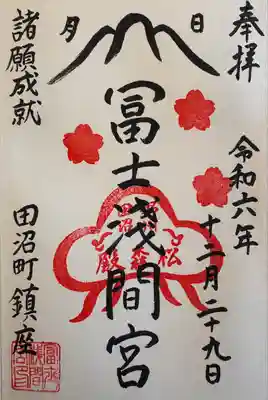 奉拝
令和六年
十二月二十九日
日
月
冨士浅間宮
諸願成就
田沼町鎮座